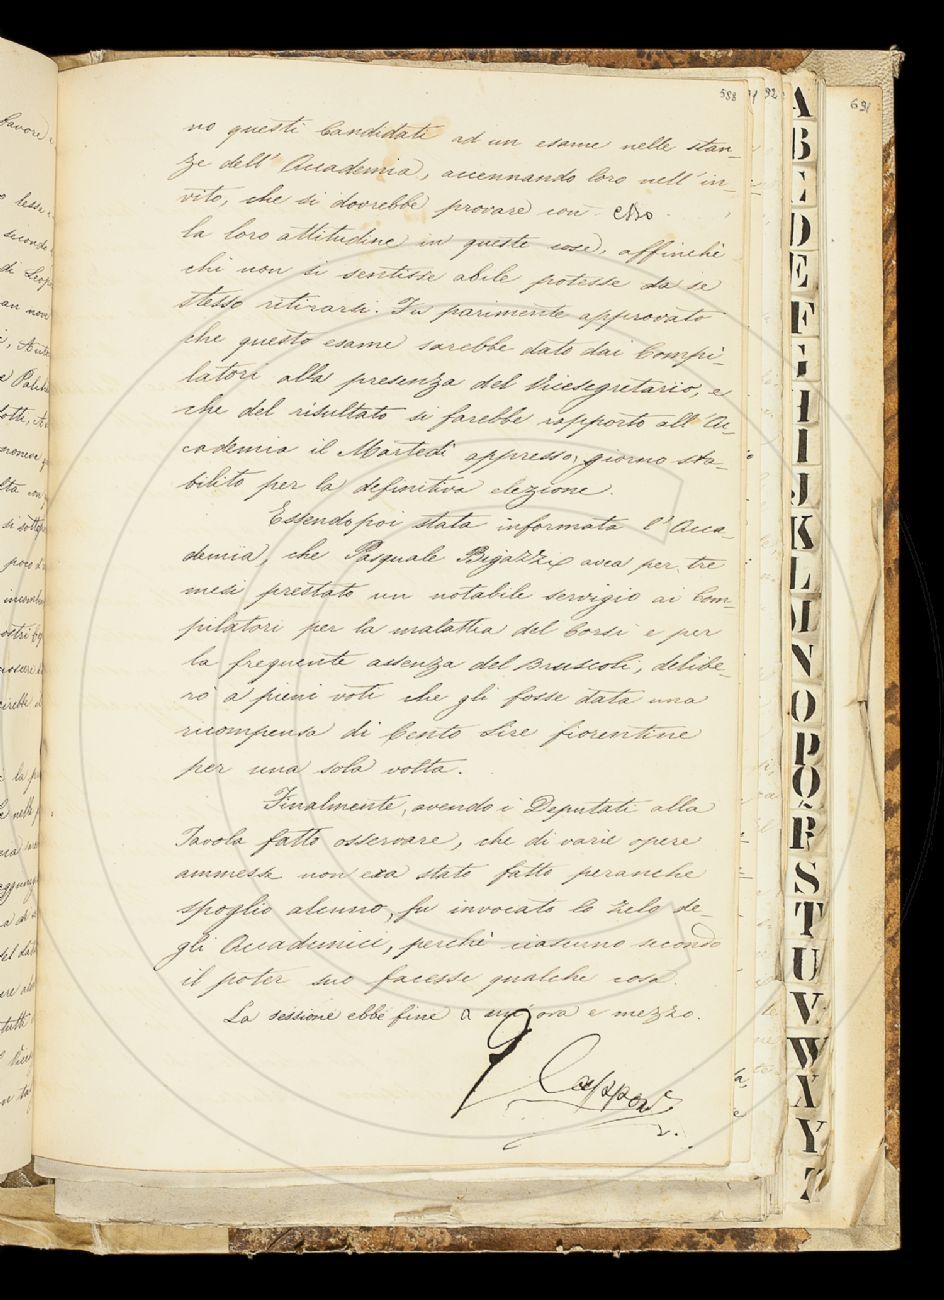 588
92
691
no questi Candidati ad un esame nelle stan-
ze dell'Accademia, accennando loro nell'in-
vito, che si dovrebbe provare con esso
la loro attitudine in queste cose, affinchè
chi non si sentisse abile potesse da se
stesso ritirarsi. Fu parimente approvato
che questo esame sarebbe dato dai Compi-
latori alla presenza del Vicesegretario, e
che del risultato si farebbe rapporto all'Ac-
cademia il Martedì appresso, giorno sta-
bilito per la definitiva elezione.
Essendo poi stata informata l'Acca-
demia, che Pasquale Bigazzi avea per tre
mesi prestato un notabile servigio ai Com-
pilatori per la malattia del Corsi e per
la frequente assenza del Bruscoli, delibe-
rò a pieni voti che gli fosse data una
ricompensa di Cento Lire fiorentine
per una sola volta.
Finalmente, avendo i Deputati alla
Tavola fatto osservare, che di varie opere
ammesse non era stato fatto peranche
spoglio alcuno, fu invocato lo zelo de-
gli Accademici, perchè ciascuno secondo
il poter suo facesse qualche cosa.
La sessione ebbe fine a un'ora e mezzo.
G Capponi
A
B
C
D
E
F
G
H
I
J
K
L
M
N
O
P
Q
R
S
T
U
V
W
X
Y
Z